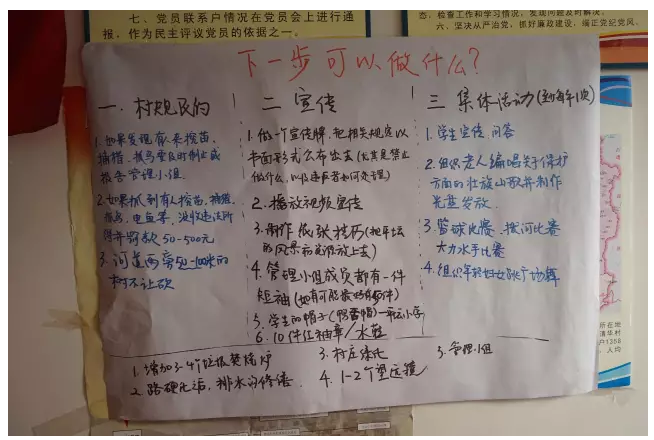 七、党员联系户情况在党员会上进行通
报，作为民主评议党员的依据之一。
态，检查工作和学习情况，发现问题及时解决。
六、坚决从严治党，抓好廉政建设，端正党纪党风，
下一步可以做什么？
一.村规民约
1.如果发现有人来挖苗、
捕猎、抓鸟要及时制止或
报告管理小组.
2.如果抓到有人挖苗,捕猎,
抓鸟,电鱼等,没收违法所
得并罚款50-500元
3.河道两旁50-100米的
树不让砍
二 宣传
1.做一个宣传牌,把相关规定以
书面形式公布出去(尤其是禁止
做什么,以及违反者如何处理)
2.播放视频宣传
3.制作纸张挂历(把
的风景和资源放上去)
4.管理小组成员都有一件
短袖(如有可能最好有两件)
5.学生的帽子(鸭舌帽)
6.10件红袖章/水壶
三 集体活动(至少每年1次)
1.学生宣传 问答
2.组织老人编唱关于保护
方面的壮族山歌并制作
光盘发放.
3.篮球比赛、拔河比赛
大力水手比赛
4.组织年轻妇女跳广场舞
1.增加3-4个垃圾焚烧炉
2.路硬化后,排水沟修缮
3.村庄绿化
4.1-2个望远镜
5.管理小组
所在地
清华村
户1368
人均